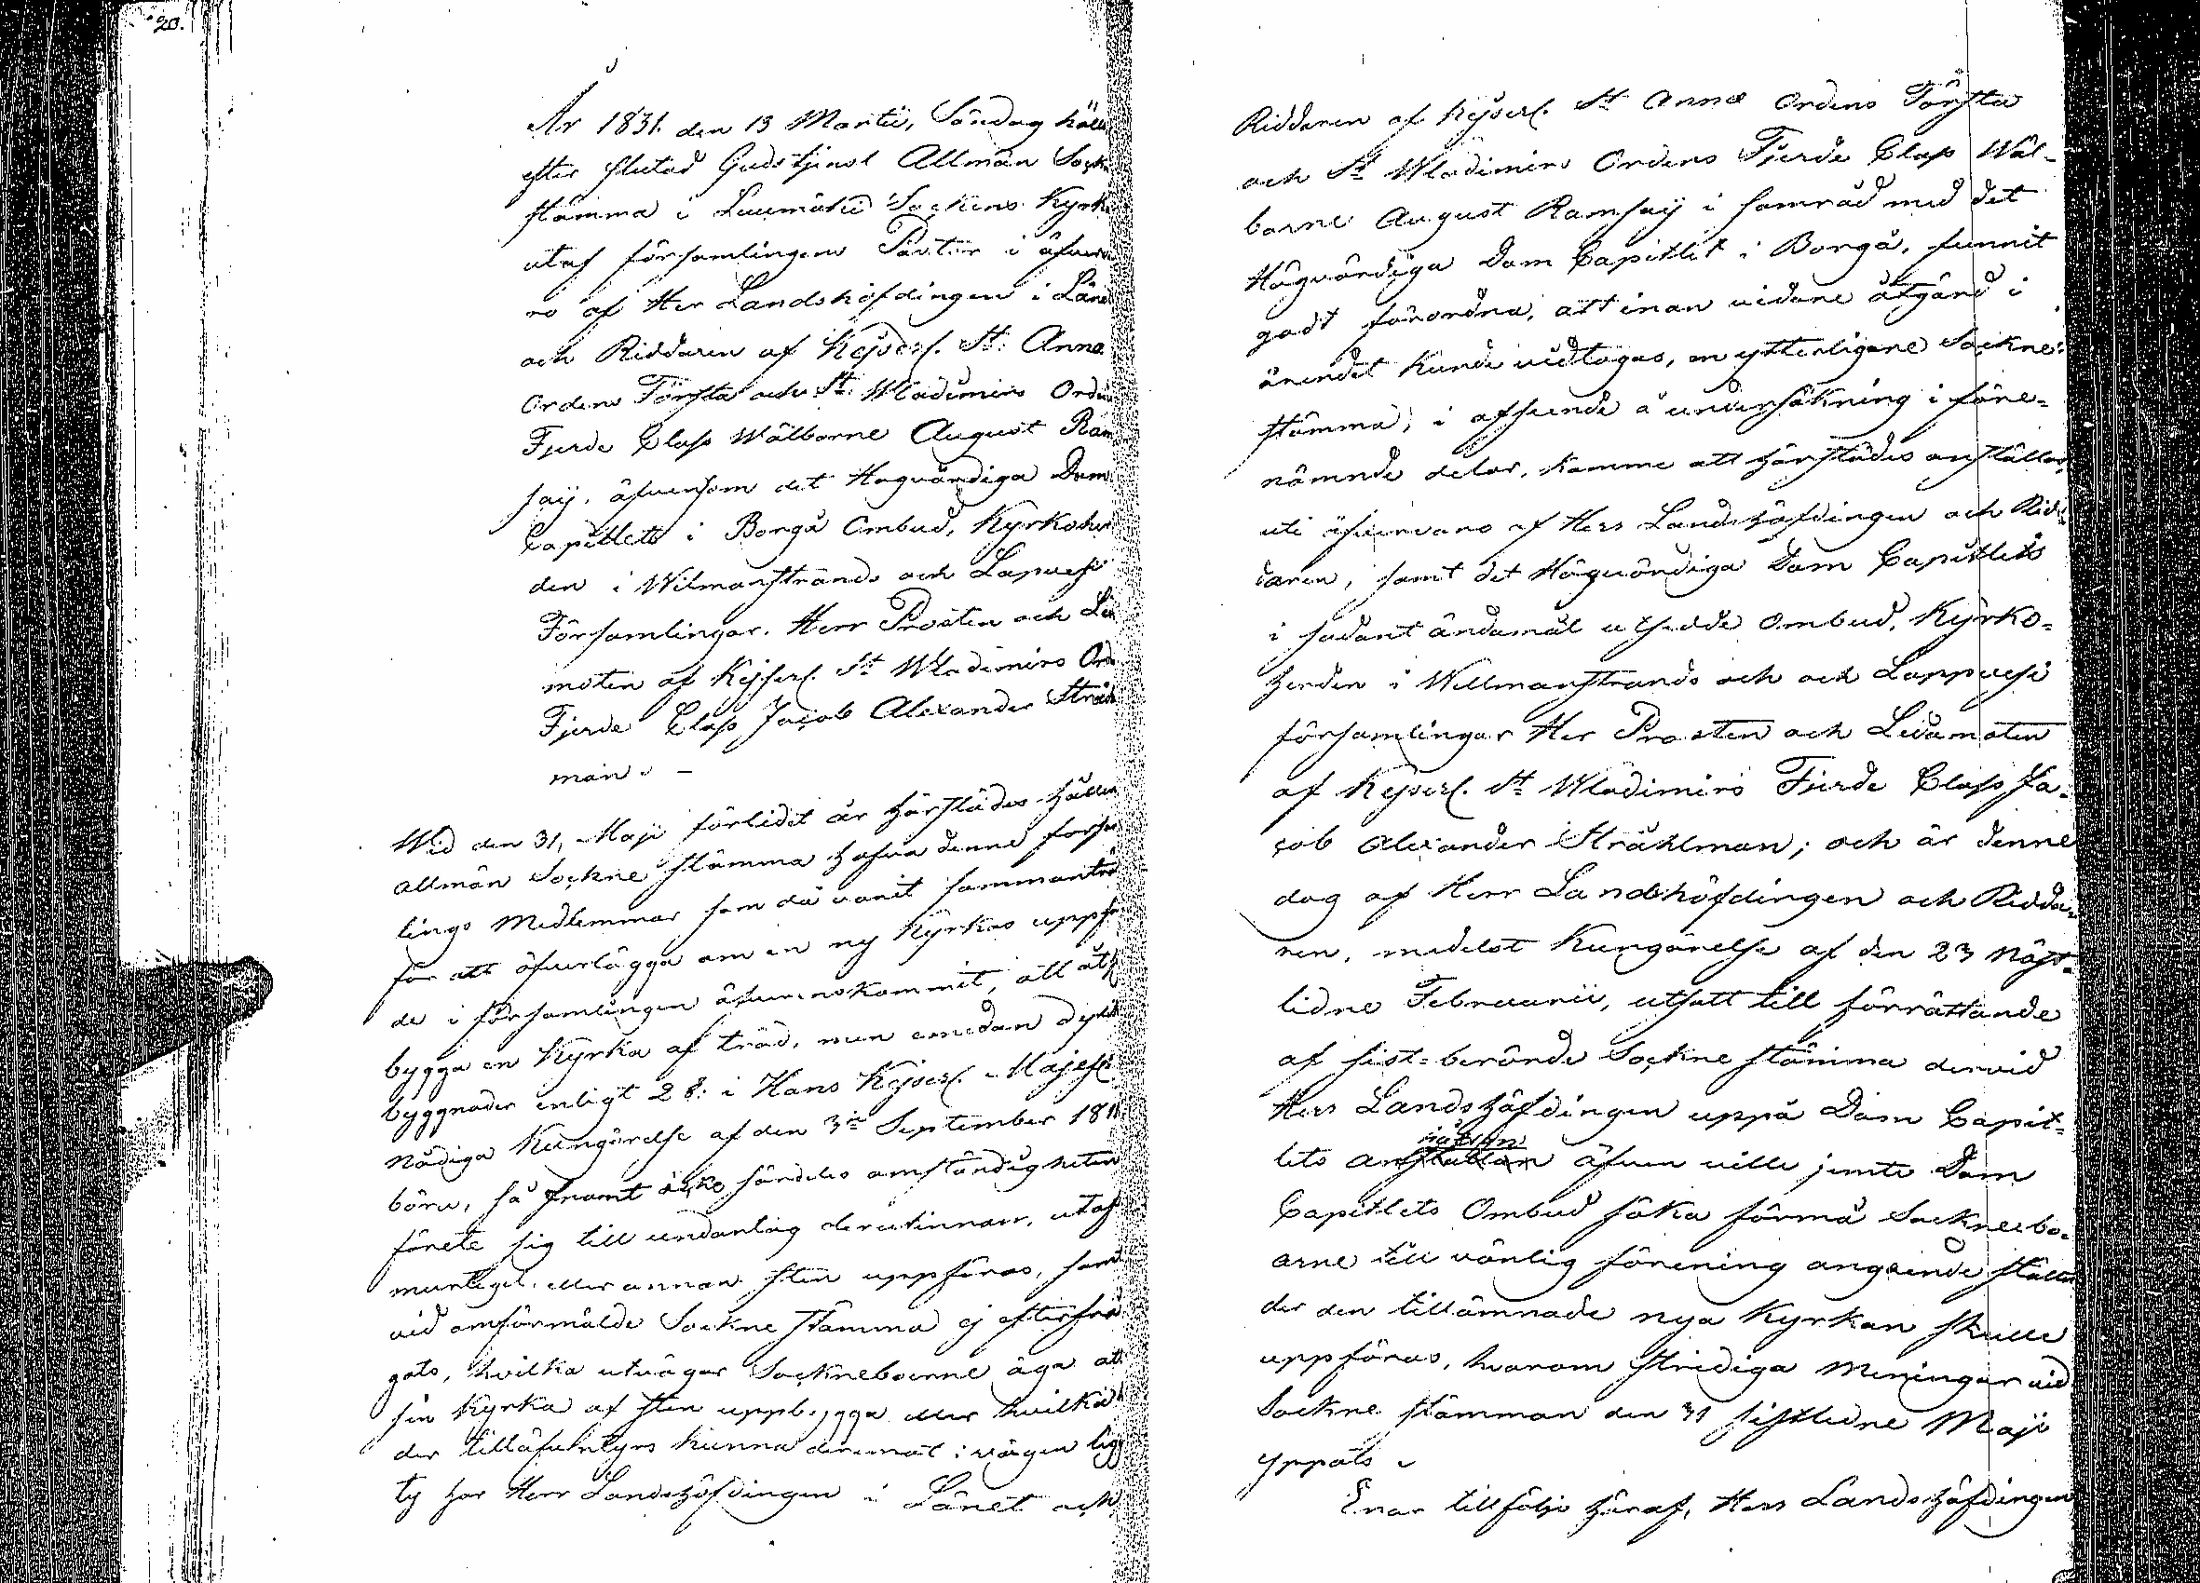 20.
År 1831. den 13 Martii, Söndag hölls
efter slutad Gudstjenst Allmän Sock
stämma i Luumäki Sockens Kyrka
utaf församlingens Pastor i öfverva
ro af Herr Landshöfdingen i Läne
och Riddaren af Kejserl. St. Annæ
Ordens Första och St. Wladimirs Orde
Fjerde Class Wälborne August Ram
say, äfvensom det Högvördiga Dom
Capitlets i Borgå Ombud, Kyrkoher
den i Wilmanstrands och Lapvesi
Församlingar, Herr Prosten och Led
moten af Kejserl. St Wladimirs Orde
Fjerde Class Jacob Alexander Stråh
man. –
Wid den 31, Maji förlidet år härstädes hållen
allmän Sockne stämma hafva denne försam
lings Medlemmar som då varit sammanträ
för att öfverlägga om en ny Kyrkas uppfö
de i församlingen öfverenskommit, att
bygga en Kyrka af träd, men emedan dyl
byggnader enligt 2 §: i Hans Kejserl. Majest
Nådiga Kungörelse af den 3:e September 181
böra, så framt icke särdeles omständigheten
förete sig till undantag derutinnan, utaf
murtegel eller annan sten uppföras, samt
vid omförmälde Sockne stämma ej efterfrå
gats, hvilka utvägar SocknebOerne äga att
sin Kyrka af sten uppbygga eller hvilka
der tilläfventyrs kunna deremot i vägen ligg
ty har Herr Landshöfdingen i Länet och
Riddaren af Kejserl. St Annæ Ordens Första
och St Wladimirs Ordens Fjerde Class Wäl-
borne August Ramsay i samråd med det
Högvördiga Dom Capitlet i Borgå, funnit
godt förordna, att innan vidare åtgärd i
ärendet kunde vidtagas, en ytterligare Sockne-
stämma, i afseende å undersökning i före-
nämnde delar, komme att härstädes anställas,
uti öfvervaro af Herr Landshöfdingen och Rid-
daren, samt det Högvördiga Dom Capitlets
i sådant ändamål utsedde Ombud, Kyrko-
herden i Willmanstrands och och Lappvesi
församlingar Herr Prosten och Ledamoten
af Kejserl. St Wladimirs Fjerde Class Ja-
cob Alexander Stråhlman; och är denne
dag af Herr Landshöfdingen och Ridda-
ren, medelst Kungörelse af den 23 näst-
lidne Februarii, utsatt till förrättande
af sist-berörde Sockne stämma dervid
Herr Landshöfdingen uppå Dom Capit-
lets anstallan äfven ville jemte Dom
Capitlets Ombud söka förmå Sockneebo-
arne till vänlig förening angående ställe
der den tillämnade nya Kyrkan skulle
uppföras, hvarom stridiga meningar vid
Sockne stämman den 31 sistledne Maji
yppats.
Enar tillfölje häraf, Herr Landshöfdingen